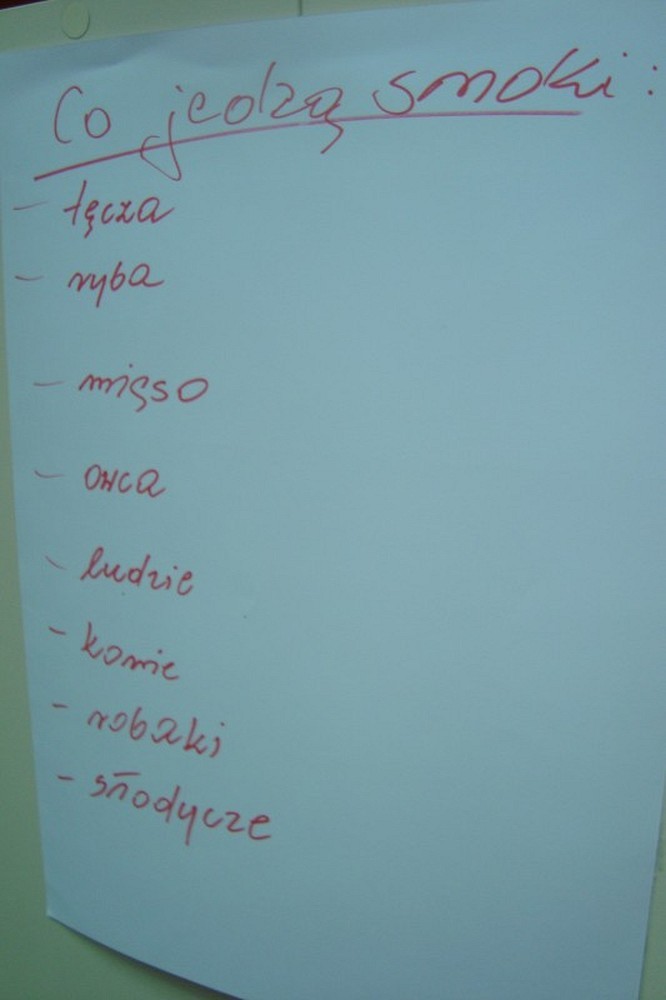 Co jedzą smoki:
- tęcza
- ryba
- mięso
- owca
- ludzie
- konie
- robaki
- słodycze